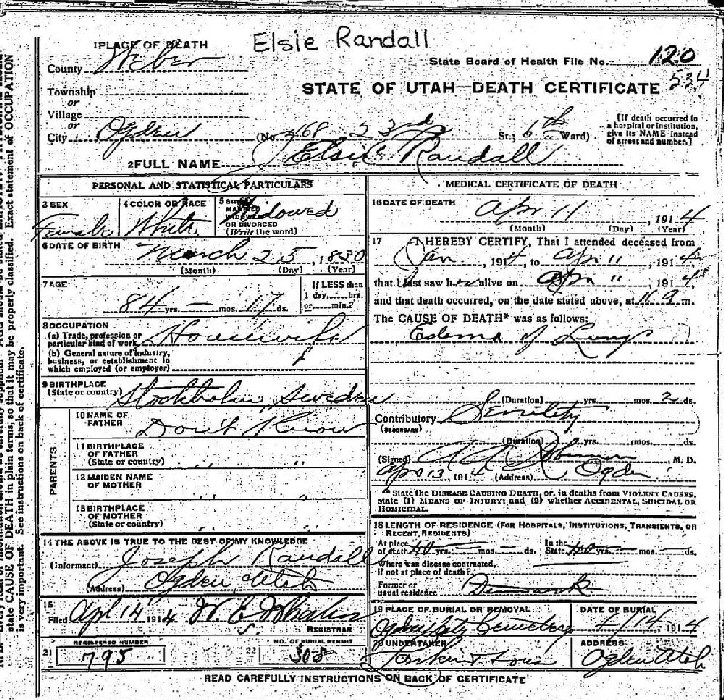 Elsie Randall
1 PLACE OF DEATH
State Board of Health File No. 120
534
County Weber
STATE OF UTAH-DEATH CERTIFICATE
Township
or
Village
or
City Ogden (No. 268 23rd St.; 6th Ward)
(If death occurred in a hospital or institution, give its NAME instead of street and number.)
2 FULL NAME Elsie Randall
PERSONAL AND STATISTICAL PARTICULARS
3 SEX Female
4 COLOR OR RACE White
5 Widowed
OR DIVORCED
(Write the word)
6 DATE OF BIRTH March 25, 1830
(Month) (Day) (Year)
7 AGE
84 yrs. — mos. 17 ds.
If LESS than
1 day, hrs.
or min.?
8 OCCUPATION
(a) Trade, profession or
particular kind of work Housewife
(b) General nature of industry,
business, or establishment in
which employed (or employer)
9 BIRTHPLACE
(State or country) Stockholm Sweden
PARENTS
10 NAME OF
FATHER Don't Know
11 BIRTHPLACE
OF FATHER
(State or country) " "
12 MAIDEN NAME
OF MOTHER " "
13 BIRTHPLACE
OF MOTHER
(State or country) " "
14 THE ABOVE IS TRUE TO THE BEST OF MY KNOWLEDGE
(Informant) Joseph Randall
(Address) Ogden Utah
15
Filed Apl 14 1914 W. E.
REGISTRAR
21 REGISTERED NUMBER
795
22 NO. OF BURIAL
308
MEDICAL CERTIFICATE OF DEATH
16 DATE OF DEATH
Apr 11, 1914
(Month) (Day) (Year)
17 I HEREBY CERTIFY, That I attended deceased from
Jan, 1914, to Apr 11, 1914
that I last saw her alive on Apr 11, 1914
and that death occurred, on the date stated above, at m.
The CAUSE OF DEATH* was as follows:
Edema of Lungs
(Duration) yrs. mos. 2 ds.
Contributory Senility
(SECONDARY)
(Duration) yrs. mos. ds.
(Signed) M. D.
Apr 13, 191 (Address) Ogden
* State the DISEASE CAUSING DEATH, or, in deaths from VIOLENT CAUSES,
state (1) MEANS OF INJURY; and (2) whether ACCIDENTAL, SUICIDAL OR
HOMICIDAL.
18 LENGTH OF RESIDENCE (FOR HOSPITALS, INSTITUTIONS, TRANSIENTS, OR
RECENT RESIDENTS)
At place
of death 40 yrs. — mos. — ds.
In the
State 40 yrs. — mos. — ds.
Where was disease contracted,
if not at place of death?
Former or
usual residence Denmark
19 PLACE OF BURIAL OR REMOVAL
Ogden City Cemetery
DATE OF BURIAL
4/14 1914
20 UNDERTAKER
ADDRESS
Ogden Utah
READ CAREFULLY INSTRUCTIONS ON BACK OF CERTIFICATE
state CAUSE OF DEATH in plain terms, so that it may be properly classified. Exact statement of OCCUPATION
is very important. See instructions on back of certificate.